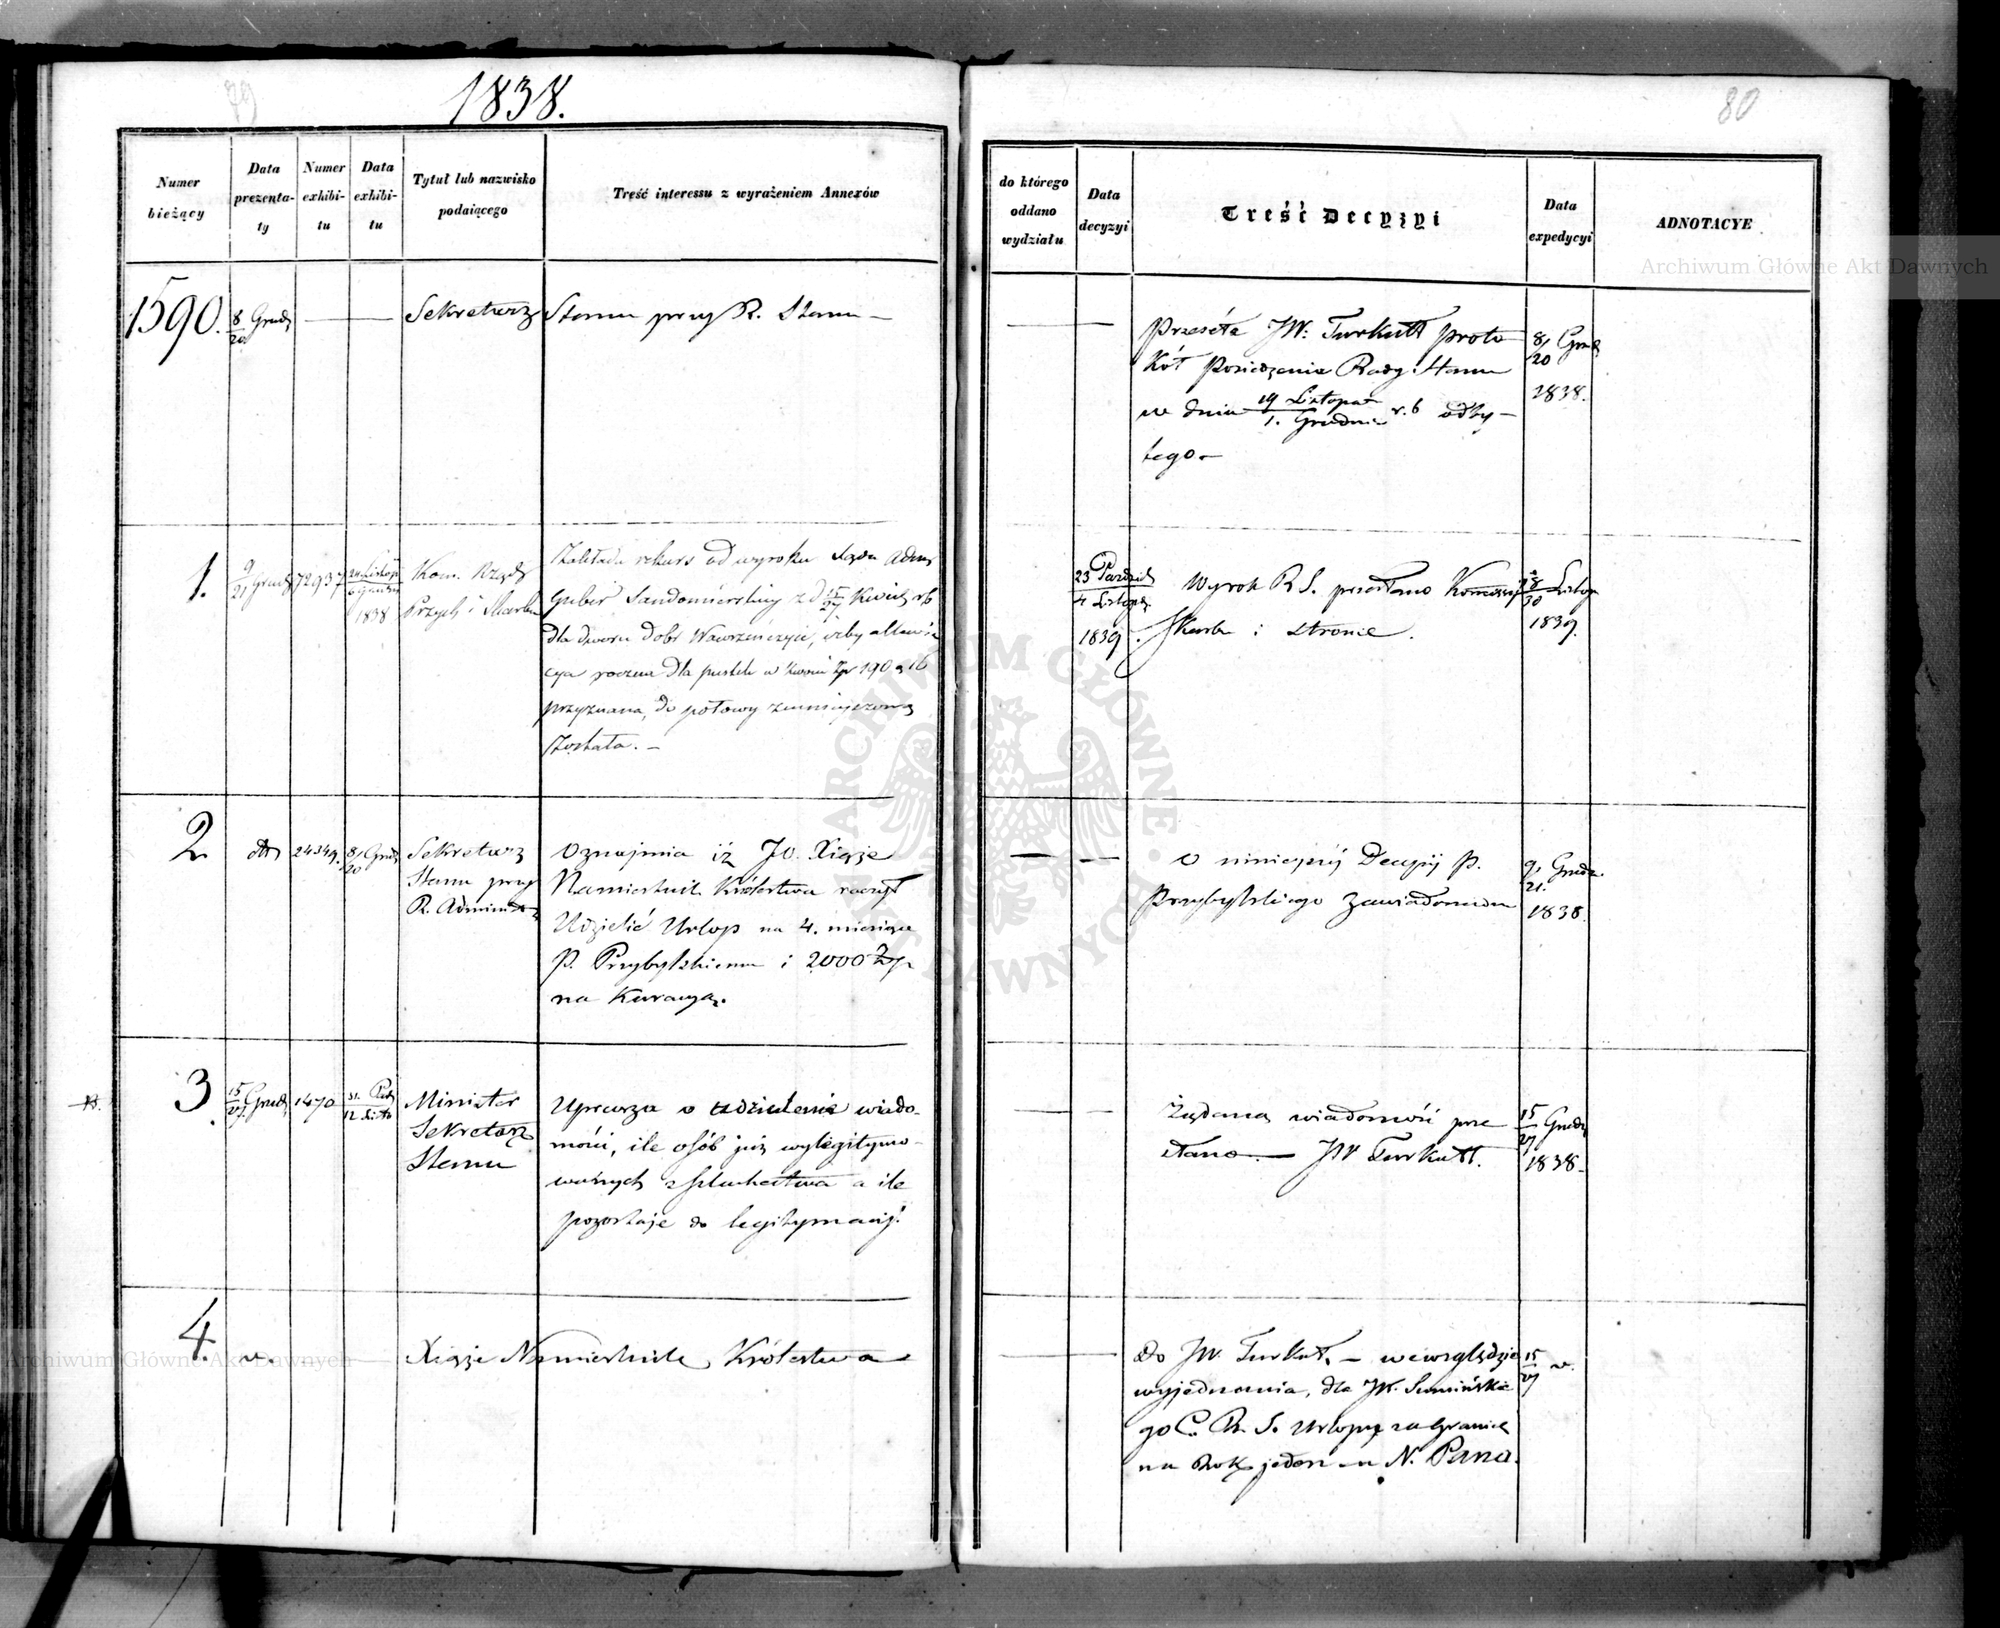 79
1838.
Numer bieżący
Data prezenta-ty
Numer exhibi-tu
Data exhibi-tu
Tytuł lub nazwisko podaiącego
Treść interessu z wyrażeniem Annexów
1590.
8/20 Grud
Sekretarz Stanu przy R. Stanu
1.
9/21 Grud
72937
24 Listop
6 Grudn
1838
Kom. Rządz
Przych i Skarbu
Zakłada rekurs od wyroku Sądu Adm
Guber Sandomierskiey z d 15/27 Kwiet r b
dla dworu dobr Wawrzeńczyce, iżby
roczna dla
przyznana, do połowy zmnieyszoną
została. –
2
dto
24349.
8/20 Grud
Sekretarz
Stanu przy
R. Administ
Oznajmia iż JO. Xiąże
Namiestnik Królestwa raczył
Udzielić Urlop na 4. miesiące
P. Przybylskiemu i 2000 Złp
na Kuracyą.
3.
15/27 Grud
1470
31. Paź
12 Listo
Minister
Sekretarz
Stanu
Uprasza o udzielenie wiado-
mości, ile osób już wylegitymo-
wanych z szlachectwa a ile
pozostaje do legitymacyj.
4.
Xiąże Namiestnik Królestwa
80
do którego oddano wydziału
Data decyzyi
Treść Decyzyi
Data expedycyi
ADNOTACYE
Przeséła JW. Turkułł proto
kół Posiedzenia Rady Stanu
w dniu 19 Listopa / 1. Grudnia r. b odby-
tego –
8/20 Gru
1838.
23 Paźdz
4 Listop
1839.
Wyrok R S. przesłano Kommissyi
Skarbu i stronie.
18/30 Listop
1839.
O niniejszej Decyzji P.
Przybylskiego zawiadomiono
9/21. Grudn.
1838.
Żądaną wiadomość prze
słano. – JW Turkułł.
15/27 Grud
1838.
Do JW. Turkuł, – wewzględzie
wyjednania, dla JW. Sumińskie
go C. R. S. Urlopu za Granicę
na Rok jeden u N. Pana.
15/27
Archiwum Główne Akt Dawnych
Archiwum Główne Akt Dawnych
ARCHIWUM GŁÓWNE AKT DAWNYCH